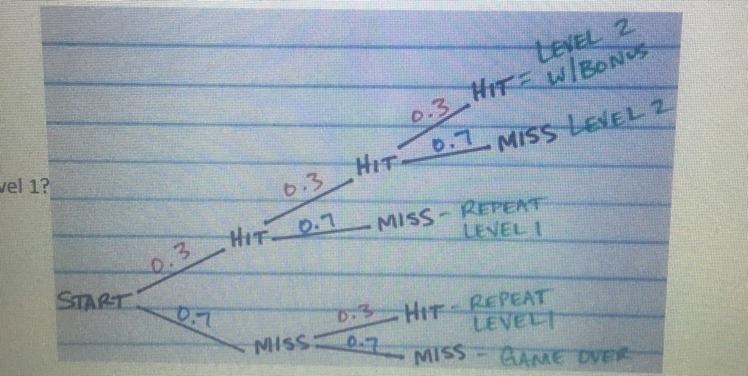 LEVEL 2
0.3 HIT = W/BONUS
0.7 MISS LEVEL 2
HIT
vel 1?
0.3
0.7 MISS - REPEAT
LEVEL 1
HIT
0.3
START
0.7
0.3 HIT - REPEAT
LEVEL 1
MISS
0.7 MISS - GAME OVER